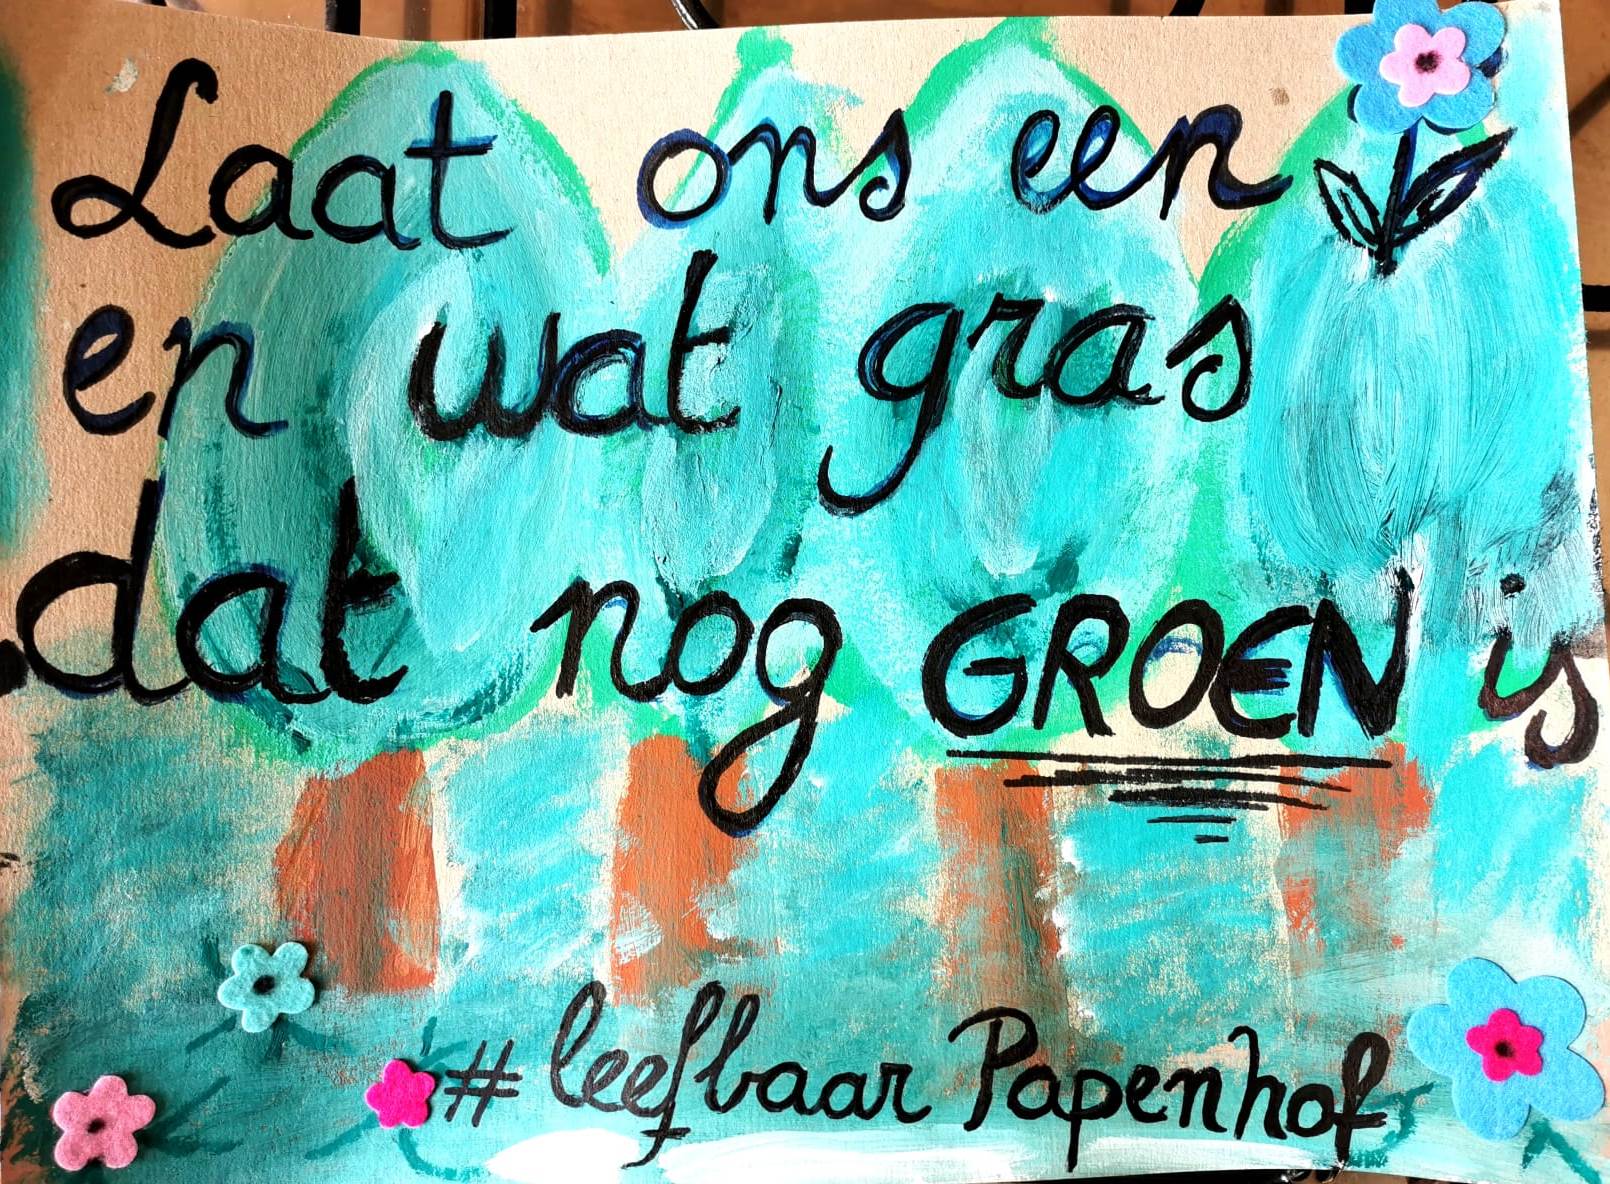 Laat ons een
en wat gras
dat nog GROEN is
# leefbaar Papenhof